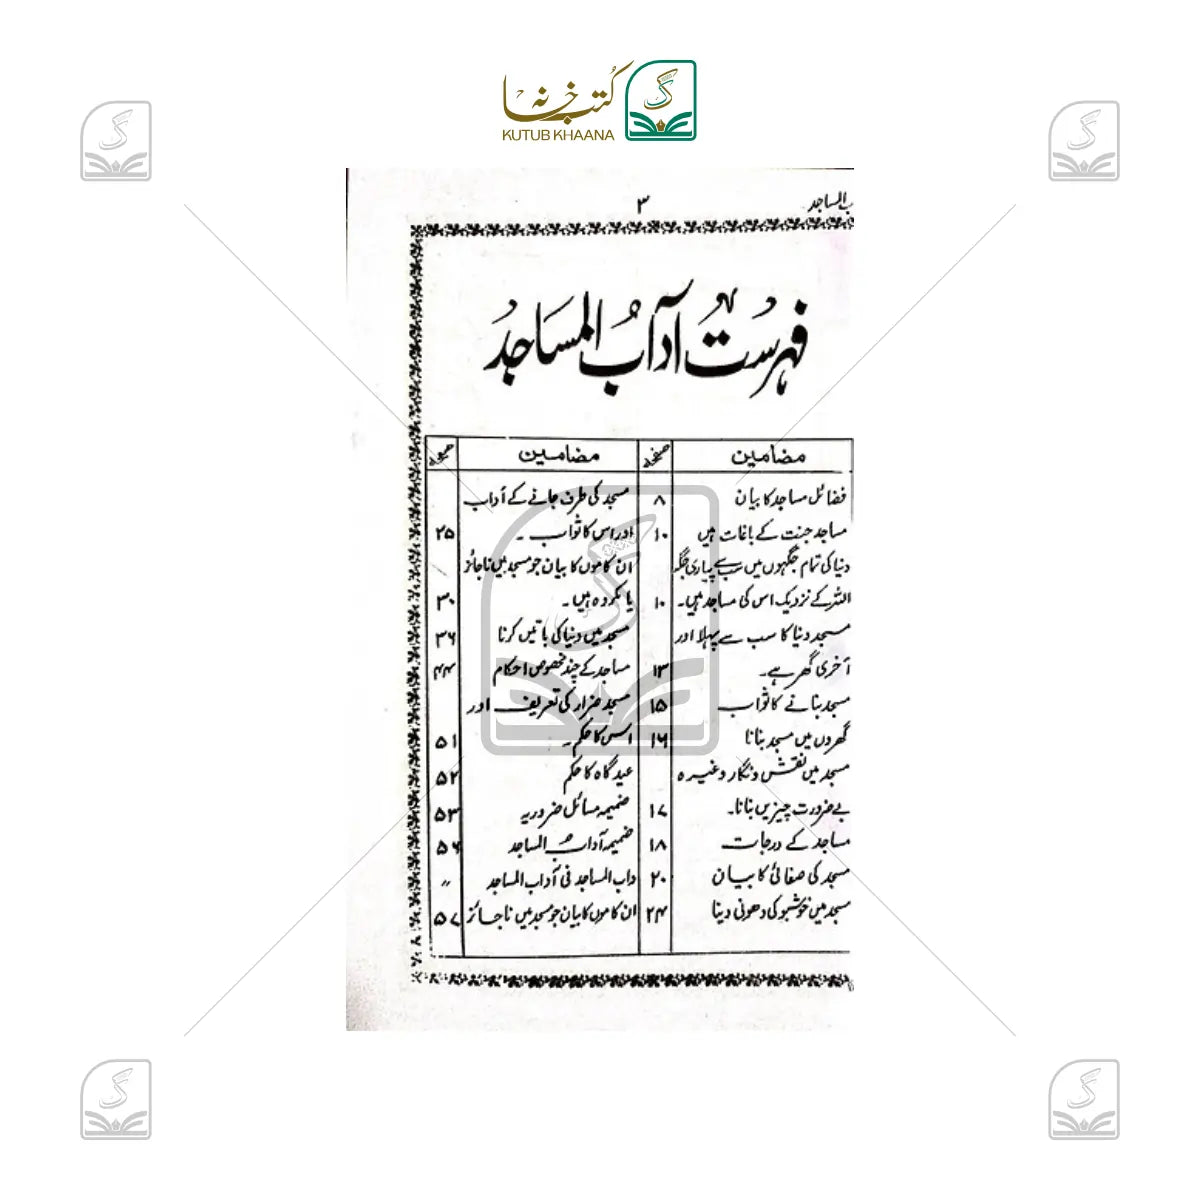 کتب خانہ
KUTUB KHAANA
ب المساجد
۳
فہرست آداب المساجد
مضامین صفحہ
فضائل مساجد کا بیان ۸
مساجد جنت کے باغات ہیں ۱۰
دنیا کی تمام جگہوں میں سب سے پیاری جگہ
اللہ کے نزدیک اس کی مساجد ہیں۔ ۱۰
مسجد دنیا کا سب سے پہلا اور
آخری گھر ہے۔ ۱۳
مسجد بنانے کا ثواب ۱۵
گھروں میں مسجد بنانا ۱۶
مسجد میں نقش و نگار وغیرہ
بے ضرورت چیزیں بنانا۔ ۱۷
مساجد کے درجات ۱۸
مسجد کی صفائی کا بیان ۲۰
مسجد میں خوشبو کی دھونی دینا ۲۴
مضامین صفحہ
مسجد کی طرف جانے کے آداب
اور اس کا ثواب ۔ ۲۵
ان کاموں کا بیان جو مسجد میں ناجائز
یا مکروہ ہیں۔ ۳۰
مسجد میں دنیا کی باتیں کرنا ۳۶
مساجد کے چند مخصوص احکام ۴۴
مسجد ضرار کی تعریف اور
اس کا حکم ۔ ۵۱
عیدگاہ کا حکم ۵۲
ضمیمہ مسائل ضروریہ ۵۳
ضمیمہ آداب المساجد ۵۶
داب المساجد فی آداب المساجد 〃
ان کاموں کا بیان جو مسجد میں ناجائز ۵۷